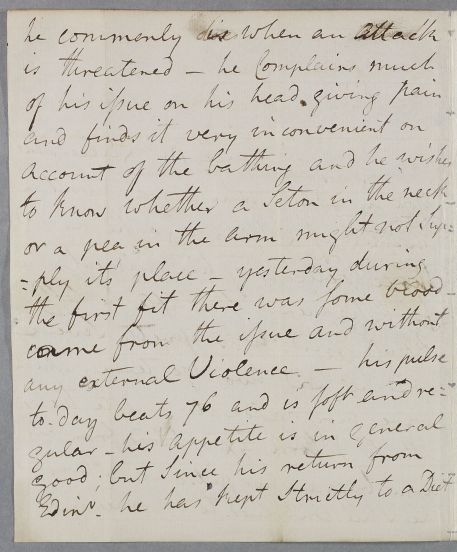 he commonly does when an attack
is threatened – he Complains much
of his ifsue on his head giving pain
and finds it very inconvenient on
account of the bathing and he wishes
to know whether a Seton in the neck
or a pea in the arm might not Sup=
=ply its place – yesterday during
the first fit there was Some blood
came from the ifsue and without
any external Violence. – his pulse
to-day beats 76 and is Soft and re=
gular – his appetite is in general
good; but Since his return from
Edinr. he has kept Strictly to a Diet